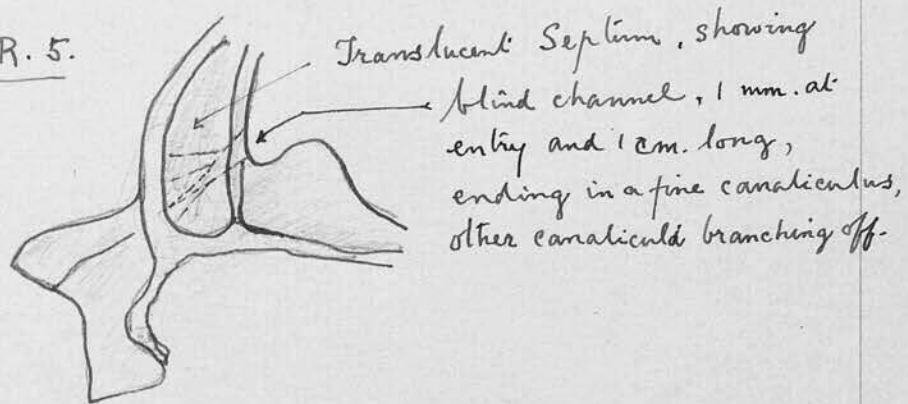 R. 5.
Translucent Septum, showing
blind channel, 1 mm. at
entry and 1 cm. long,
ending in a fine canaliculus,
other canaliculi branching off.